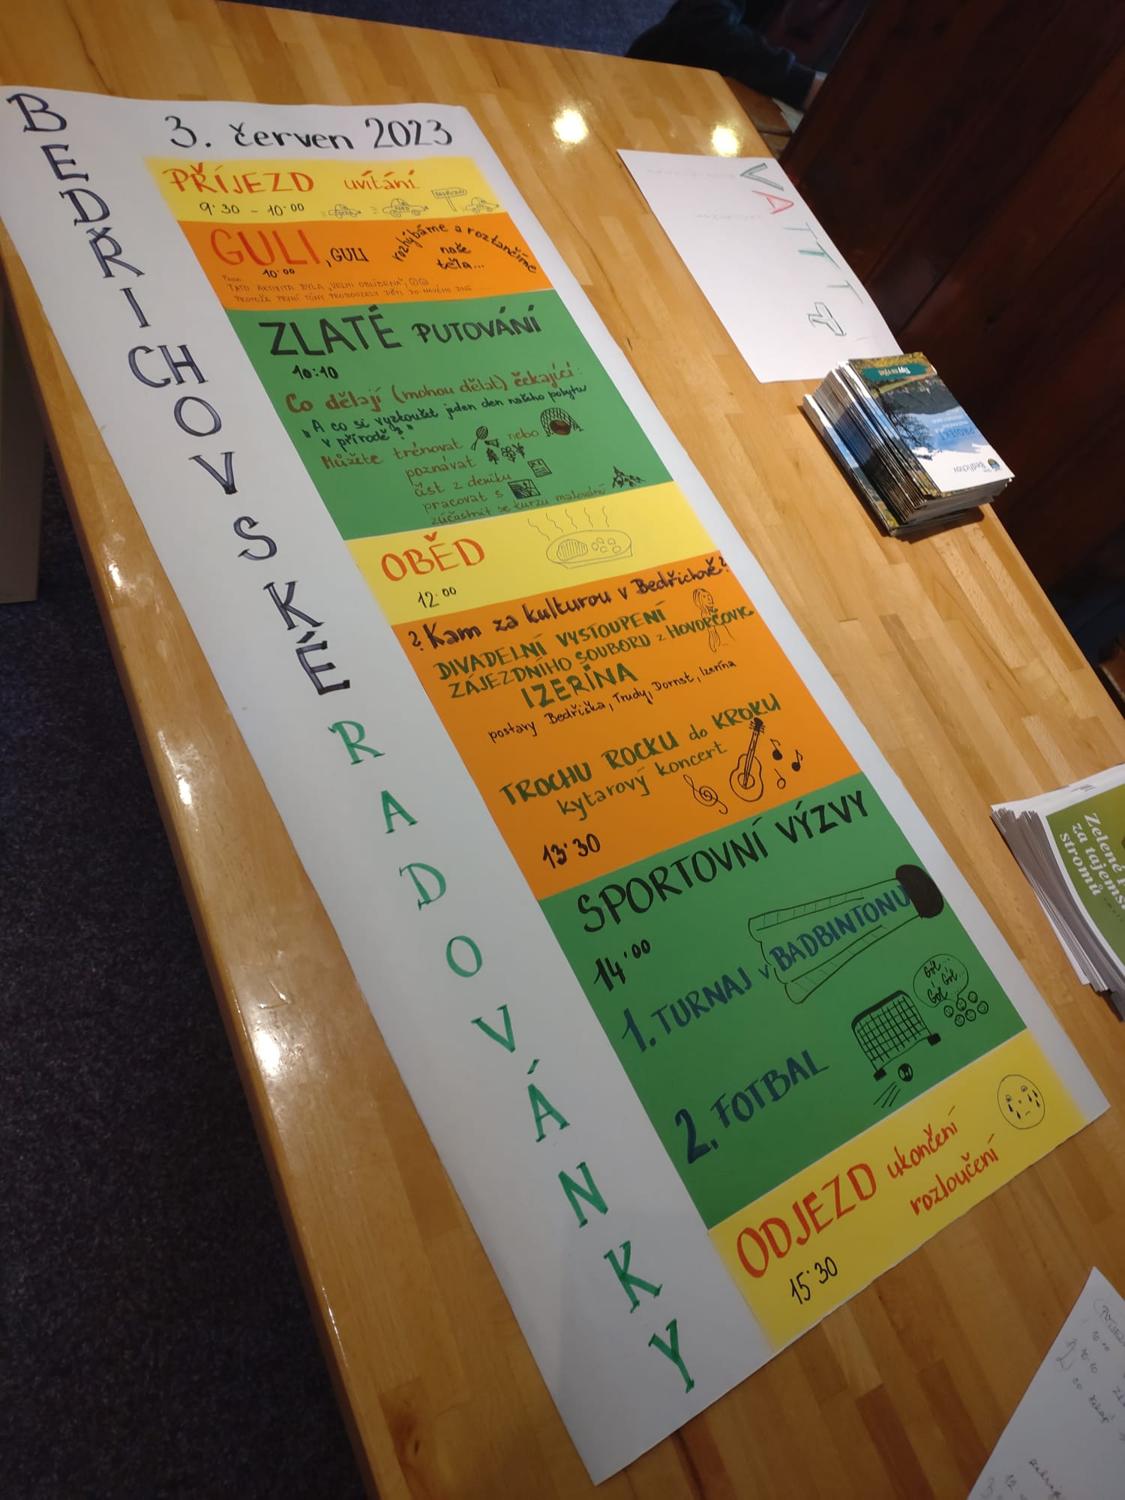 BEDŘICHOVSKÉ RADOVÁNKY
3. červen 2023
PŘÍJEZD uvítání
9:30 - 10:00
GULI, GULI
rozhýbáme a roztančíme
naše
těla...
10:00
TATO AKTIVITA BYLA „VELMI OBLÍBENÁ",
PROTOŽE PRVNÍ TÓNY PROBOUZELY DĚTI DO NOVÉHO DNE
ZLATÉ PUTOVÁNÍ
10:10
Co dělají (mohou dělat) čekající:
"A co si vyzkoušet jeden den našeho pobytu
v přírodě?"
Můžete trénovat nebo
poznávat
číst z deníku
pracovat s
zúčastnit se kurzu malování
OBĚD
12:00
? Kam za kulturou v Bedřichově?
DIVADELNÍ VYSTOUPENÍ
ZÁJEZDNÍHO SOUBORU z HOVORČOVIC
IZERÍNA
postavy Bedřiška, Trudy, Dornst, Izerína
TROCHU ROCKU do KROKU
kytarový koncert
13:30
SPORTOVNÍ VÝZVY
14:00
1. TURNAJ v BADBINTONU
Gól Gól
Gól
2. FOTBAL
ODJEZD ukončení
rozloučení
15:30
VATTT
Bedřichov
PROJEKT
Zelené
za tajems
stromů